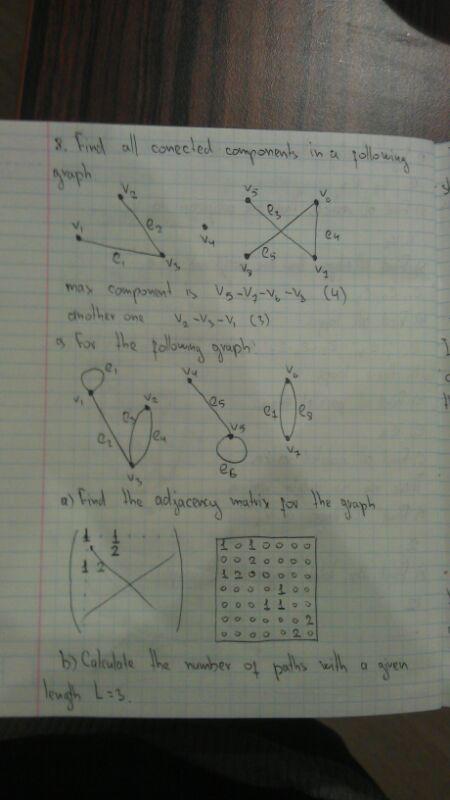 8. Find all conected components in a following
graph
v₂ v₅ v₆
v₁ e₂ v₄ e₃ e₄
e₁ v₃ v₈ e₅ v₇
max component is v₅-v₇-v₆-v₈ (4)
another one v₂-v₃-v₁ (3)
For the following graph:
e₁ v₄ v₆
v₁ v₂ e₅
e₃ e₄ e₈
e₂ v₅
v₃ e₆ v₇
a) Find the adjacency matrix for the graph
1 · 1 · · · ·
2
1 2
1 0 1 0 0 0 0
0 0 2 0 0 0 0
1 2 0 0 0 0 0
0 0 0 0 1 0 0
0 0 0 1 1 0 0
0 0 0 0 0 0 2
0 0 0 0 0 2 0
b) Calculate the number of paths with a given
length L=3.